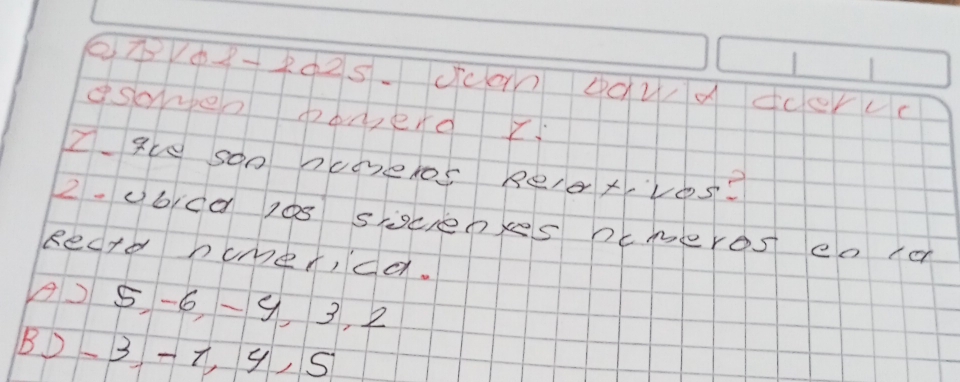 02-2025. Juan David
esamen número I:
I- que son numeros Relativos?
2- ubica los siguientes numeros en la
Recta numerica.
A) 5, -6, -4, 3, 2
B) -3, -1, 4, 5